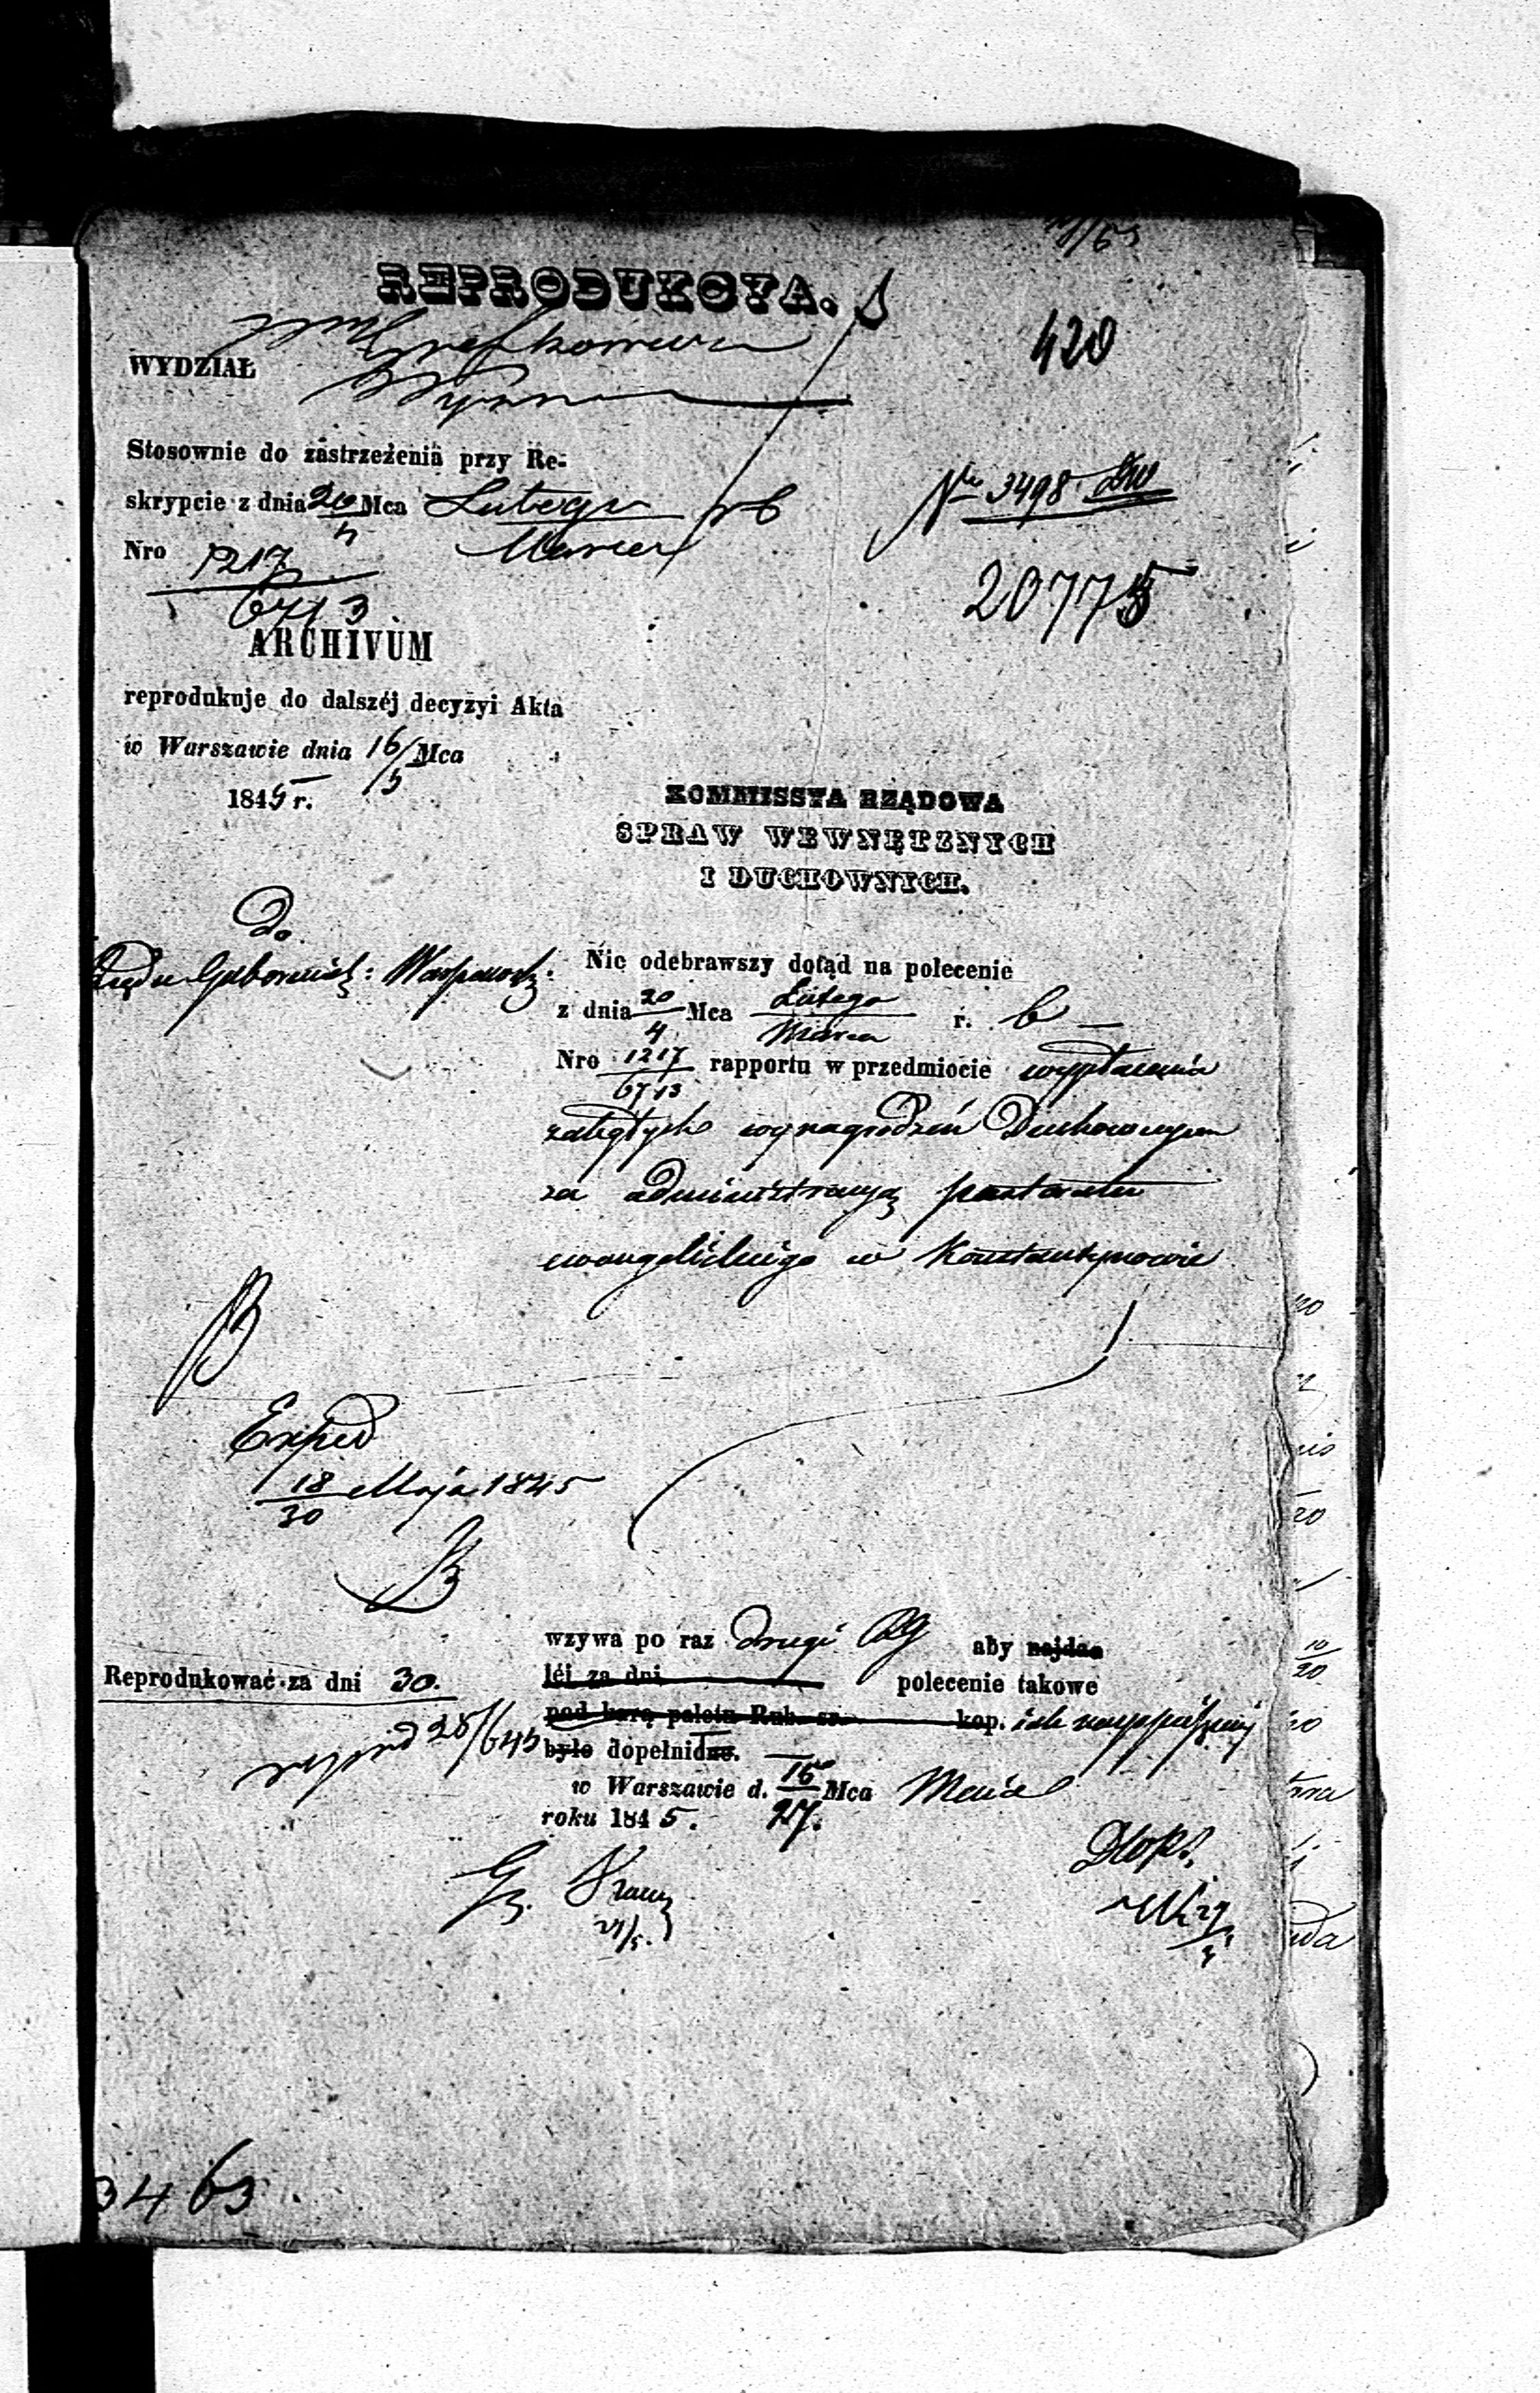 REPRODUKCYA.
420
WYDZIAŁ
Stosownie do zastrzeżenia przy Re-
skrypcie z dnia 20/4 Mca Lutego/Marca rb
Nro 1217/6713
No 3498
20775
ARCHIVUM
reprodukuje do dalszéj decyzyi Akta
w Warszawie dnia 16/5 Mca
1845 r.
KOMMISSYA RZĄDOWA
SPRAW WEWNĘTZNYCH
I DUCHOWNYCH.
Do
Rządu Gubernial: Warszawsk:
Nic odebrawszy dotąd na polecenie
z dnia 20/4 Mca Lutego/Marca r. b
Nro 1217/6713 rapportu w przedmiocie wypłacenia
zaległych wynagrodzeń Duchownym
za administracyą pastoratu
ewangelickiego w Konstantynowie
Exped
18/30 Maja 1845
wzywa po raz drugi RG aby najda
léj za dni polecenie takowe
Reprodukować za dni 30.
pod karą paletu Rub. sr. kop. jak najspieszniej
było dopełnione.
w Warszawie d. 15/27. Mca Maia
roku 1845.
3463